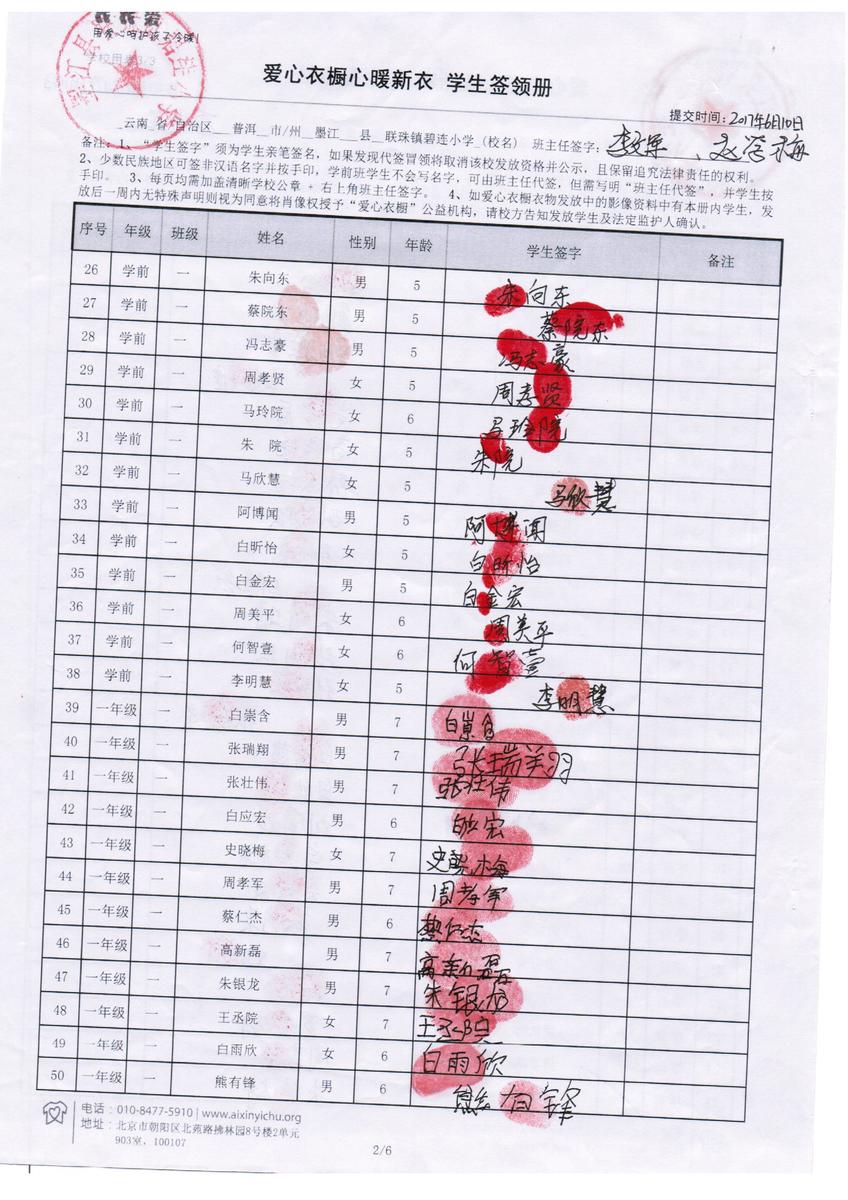 用爱心呵护孩子冷暖!
学校用表3/3
爱心衣橱心暖新衣 学生签领册
提交时间：2017年6月10日
云南 省 自治区 普洱 市/州 墨江 县 联珠镇碧连小学 (校名) 班主任签字：
备注：1、“学生签字”须为学生亲笔签名，如果发现代签冒领将取消该校发放资格并公示，且保留追究法律责任的权利。
2、少数民族地区可签非汉语名字并按手印，学前班学生不会写名字，可由班主任代签，但需写明“班主任代签”，并学生按
手印。 3、每页均需加盖清晰学校公章 + 右上角班主任签字。 4、如爱心衣橱衣物发放中的影像资料中有本册内学生，发
放后一周内无特殊声明则视为同意将肖像权授予“爱心衣橱”公益机构，请校方告知发放学生及法定监护人确认。
序号 年级 班级 姓名 性别 年龄 学生签字 备注
26 学前 一 朱向东 男 5 朱向东
27 学前 一 蔡院东 男 5 蔡院东
28 学前 一 冯志豪 男 5 冯志豪
29 学前 一 周孝贤 女 5 周孝贤
30 学前 一 马玲院 女 6 马玲院
31 学前 一 朱 院 女 5 朱院
32 学前 一 马欣慧 女 5 马欣慧
33 学前 一 阿博闻 男 5 阿博闻
34 学前 一 白昕怡 女 5 白昕怡
35 学前 一 白金宏 男 5 白金宏
36 学前 一 周美平 女 6 周美平
37 学前 一 何智壹 女 6 何智壹
38 学前 一 李明慧 女 5 李明慧
39 一年级 一 白崇含 男 7 白崇含
40 一年级 一 张瑞翔 男 7 张瑞翔
41 一年级 一 张壮伟 男 7 张壮伟
42 一年级 一 白应宏 男 6 白应宏
43 一年级 一 史晓梅 女 7 史晓梅
44 一年级 一 周孝军 男 7 周孝军
45 一年级 一 蔡仁杰 男 6 蔡仁杰
46 一年级 一 高新磊 男 7 高新磊
47 一年级 一 朱银龙 男 7 朱银龙
48 一年级 一 王丞院 女 7 王丞院
49 一年级 一 白雨欣 女 6 白雨欣
50 一年级 一 熊有锋 男 6 熊有锋
电话：010-8477-5910 | www.aixinyichu.org
地址：北京市朝阳区北苑路拂林园8号楼2单元
903室，100107
2/6